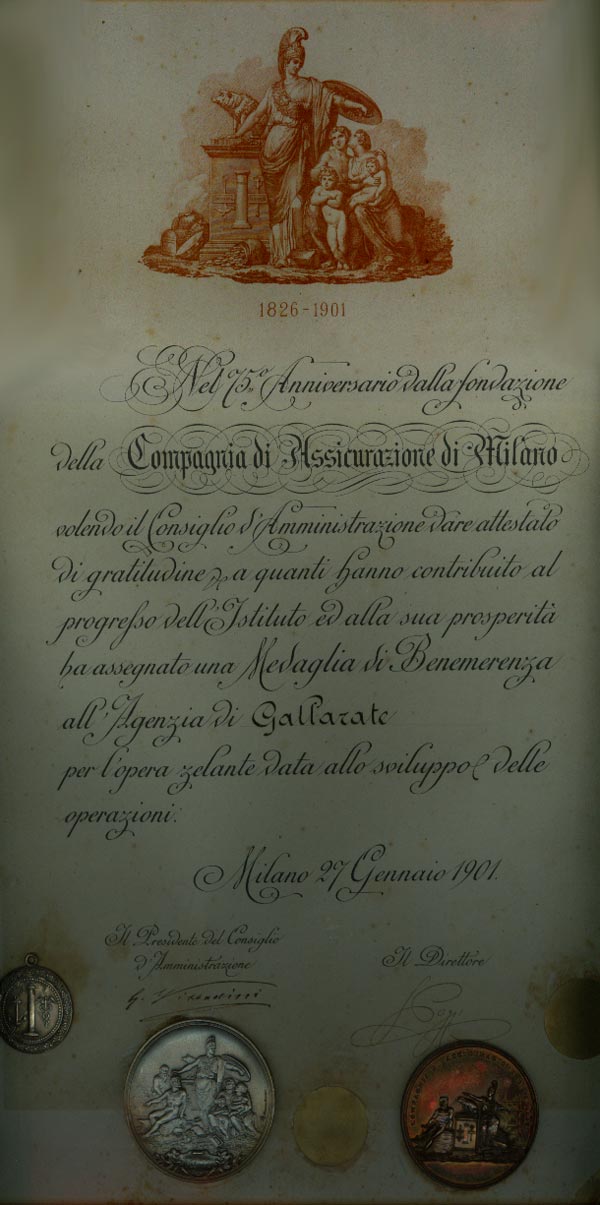 1826-1901
Nel 75.º Anniversario dalla fondazione
della Compagnia di Assicurazione di Milano
volendo il Consiglio d'Amministrazione dare attestato
di gratitudine a quanti hanno contribuito al
progresso dell'Istituto ed alla sua prosperità
ha assegnato una Medaglia di Benemerenza
all'Agenzia di Gallarate
per l'opera zelante data allo sviluppo delle
operazioni.
Milano 27 Gennaio 1901.
Il Presidente del Consiglio
d'Amministrazione
Il Direttore